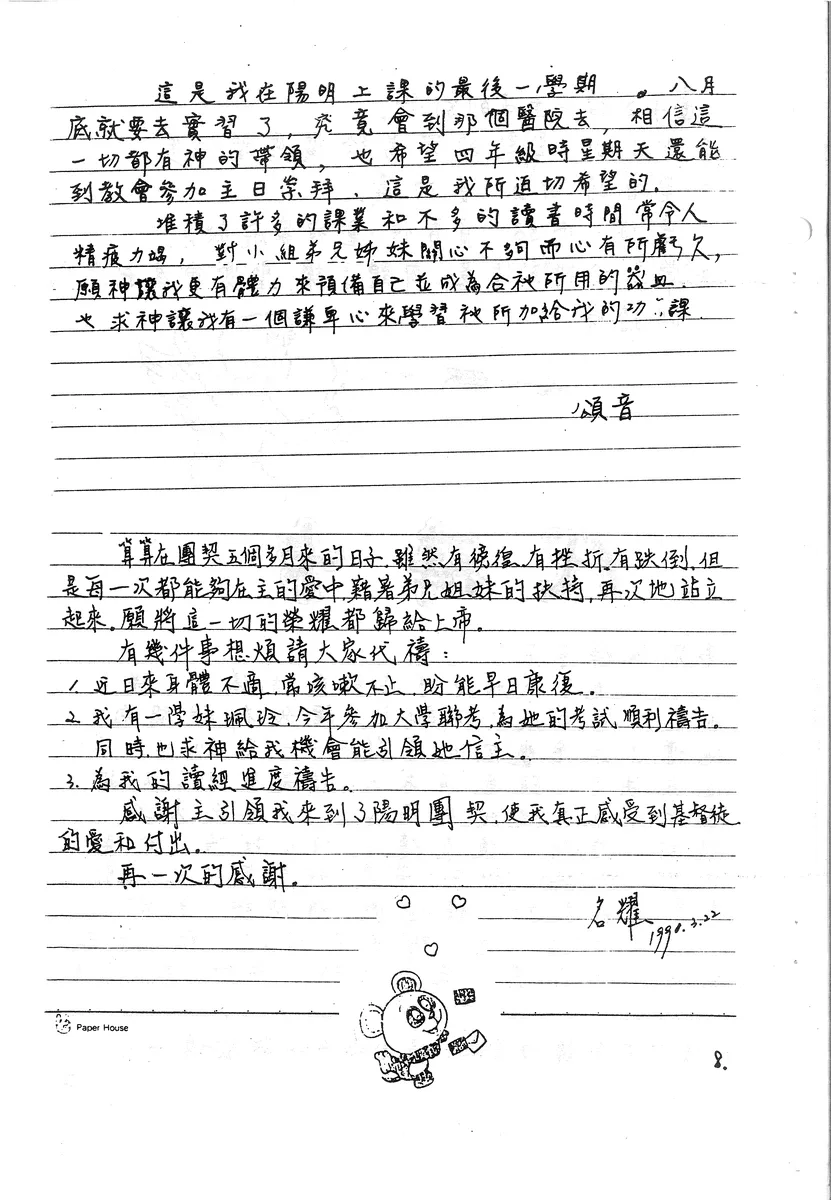 這是我在陽明上課的最後一學期。八月
底就要去實習了，究竟會到那個醫院去，相信這
一切都有神的帶領，也希望四年級時星期天還能
到教會參加主日崇拜、這是我所迫切希望的.
堆積了許多的課業和不多的讀書時間常令人
精疲力竭，對小組弟兄姊妹關心不夠而心有所虧欠，
願神讓我更有體力來預備自己並成為合祂所用的器皿.
也求神讓我有一個謙卑心來學習祂所加給我的功課
頌音
算算在團契五個多月來的日子，雖然有徬徨、有挫折、有跌倒，但
是每一次都能夠在主的愛中，藉著弟兄姐妹的扶持，再次地站立
起來。願將這一切的榮耀都歸給上帝。
有幾件事想煩請大家代禱：
1. 近日來身體不適，常咳嗽不止，盼能早日康復。
2. 我有一學妹珮玲，今年參加大學聯考，為她的考試順利禱告。
同時，也求神給我機會能引領她信主。
3. 為我的讀經進度禱告。
感謝主引領我來到了陽明團契，使我真正感受到基督徒
的愛和付出。
再一次的感謝。
名耀
1990.3.22
Paper House
8.